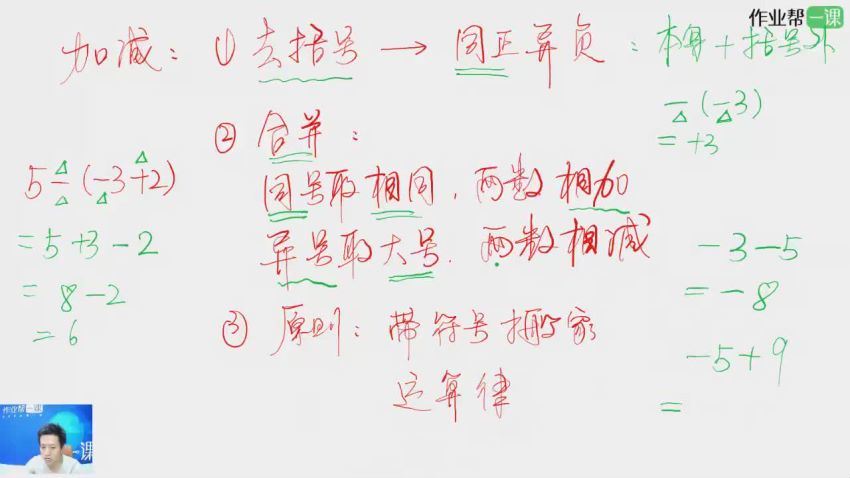 作业帮一课
加减：① 去括号 → 同正异负：本身 + 括号外
-(-3)
= +3
② 合并：
同号取相同，两数相加
异号取大号，两数相减
③ 原则：带符号搬家
运算律
5-(-3+2)
=5+3-2
= 8-2
= 6
-3-5
= -8
-5+9
=
作业帮一课
一课